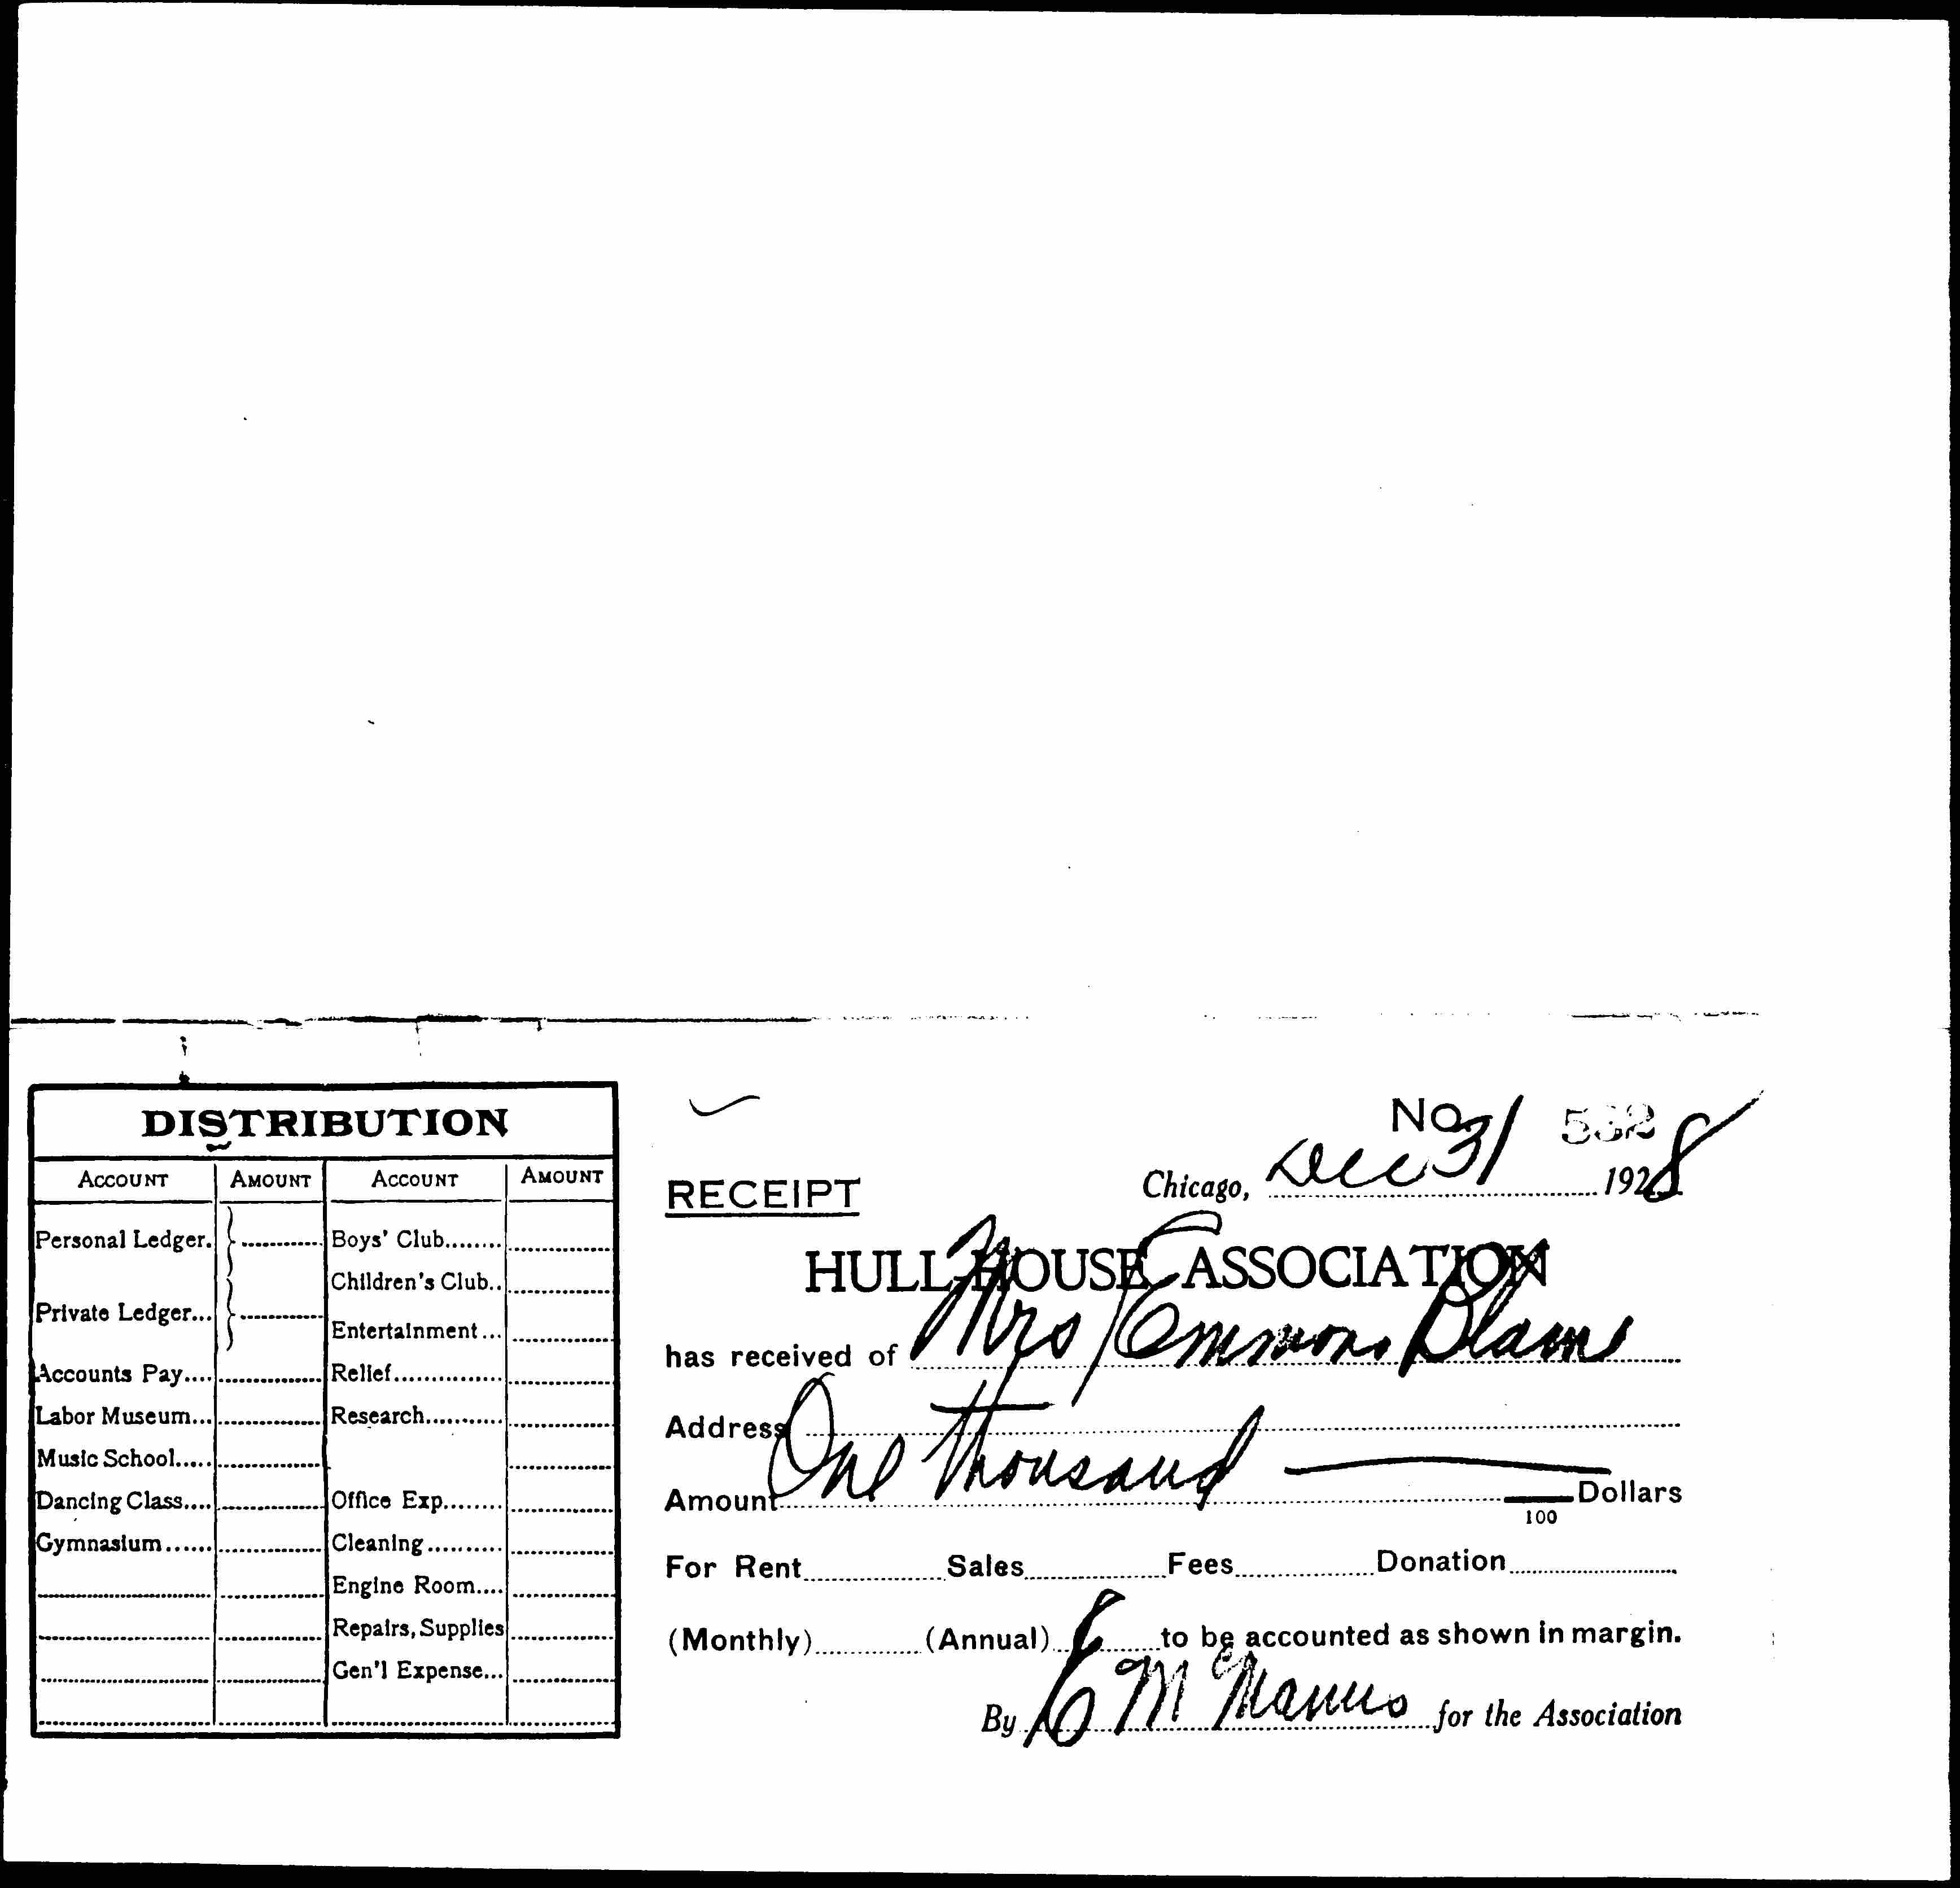 DISTRIBUTION
ACCOUNT AMOUNT ACCOUNT AMOUNT
Personal Ledger. Boys' Club........
Children's Club..
Private Ledger... Entertainment...
Accounts Pay.... Relief...............
Labor Museum... Research...........
Music School.....
Dancing Class.... Office Exp........
Gymnasium...... Cleaning..........
Engine Room....
Repairs, Supplies
Gen'l Expense...
No.
RECEIPT Chicago, Dec 31 1928
HULL-HOUSE ASSOCIATION
has received of Mrs Emmons Blaine
Address
Amount One Thousand Dollars
100
For Rent Sales Fees Donation
(Monthly) (Annual) to be accounted as shown in margin.
By E McManus for the Association